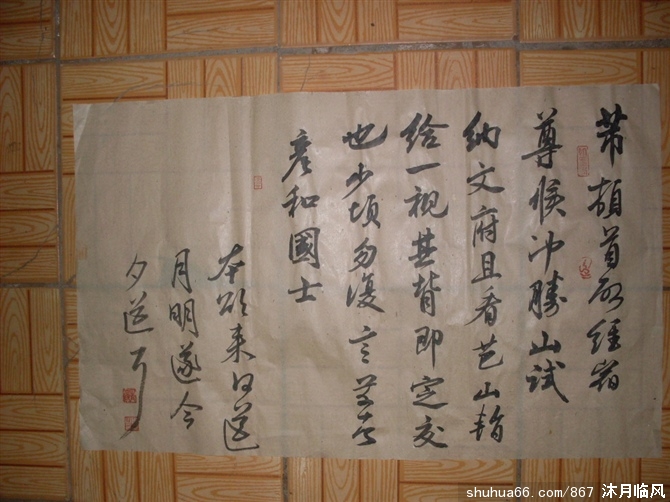 芾頓首啟經宿
尊候冲勝山試
納文府且看芭山暫
給一視其背即定交
也少頃勿復言芾
彥和國士
本欲来日送
月明遂今
夕送耳
shuhua66.com/867 沐月临风